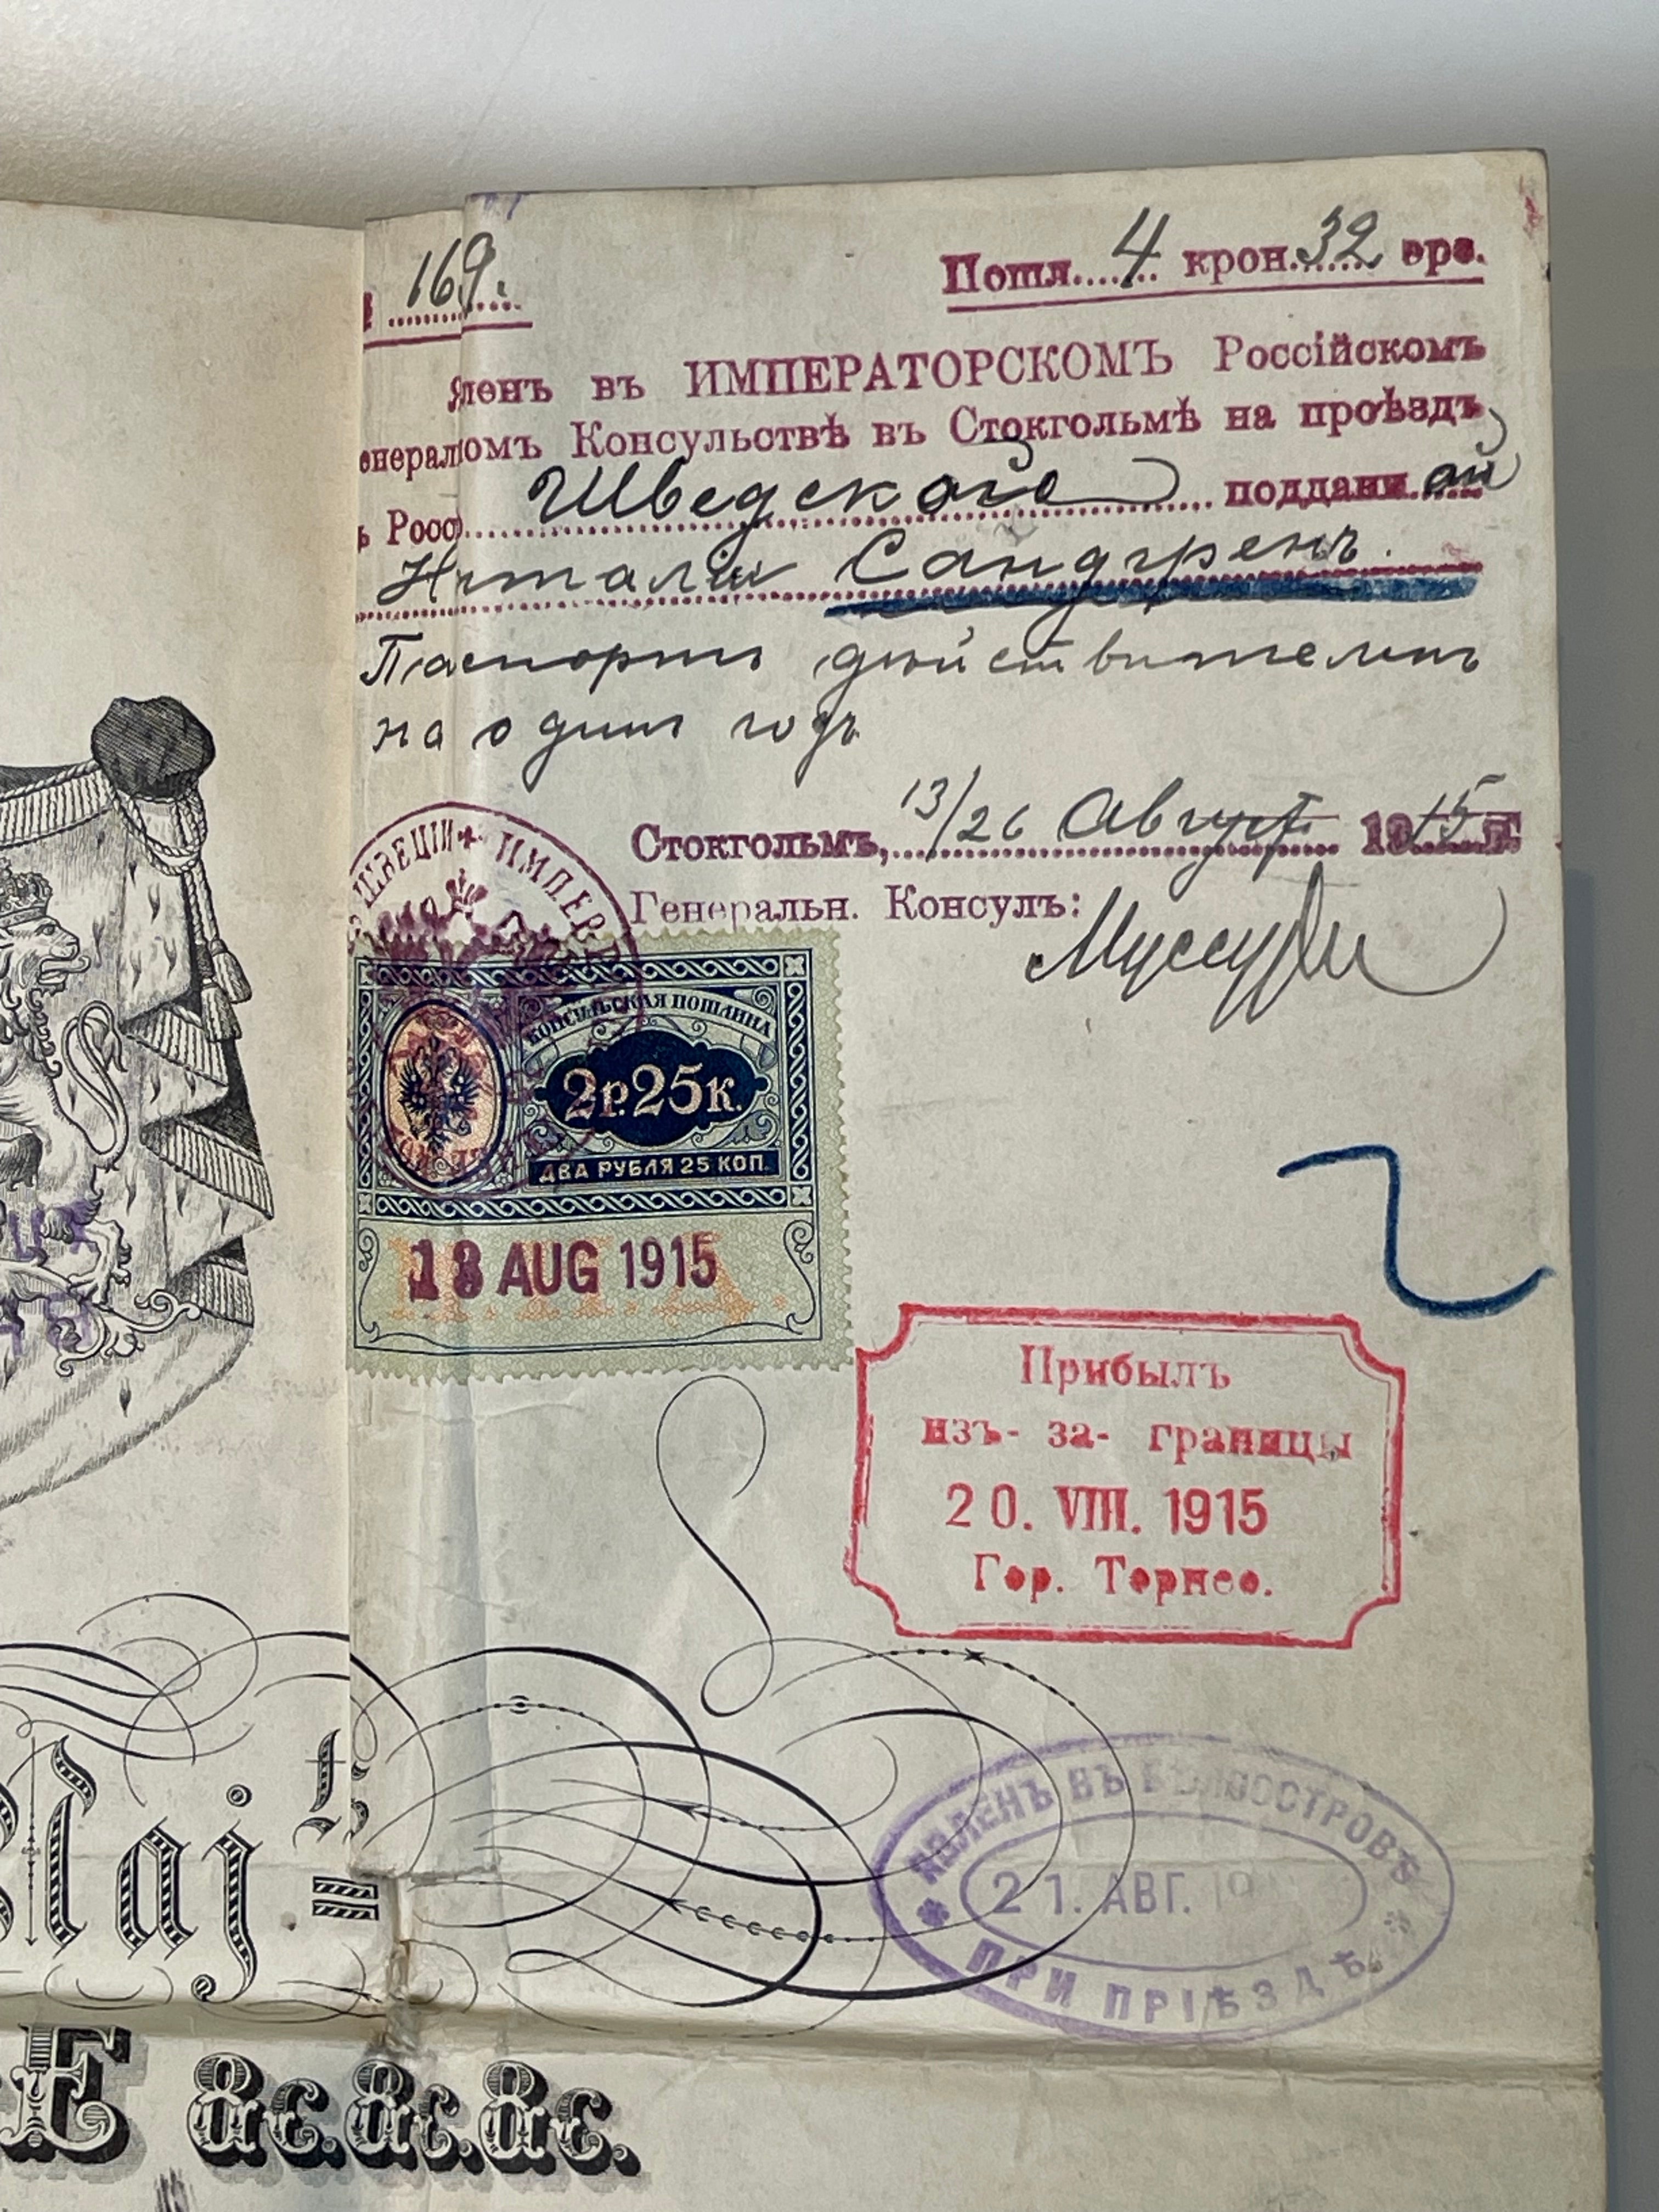 169.
Пошл.... 4 крон. 32 эре.
Явленъ въ ИМПЕРАТОРСКОМЪ Россійскомъ
енеральномъ Консульствѣ въ Стокгольмѣ на проѣздъ
ъ Росс Шведской подданн ой
Наталіи Сандгренъ.
Паспортъ дѣйствителенъ
на одинъ годъ
Стокгольмъ, 13/26 Август 1915 г.
Генеральн. Консулъ:
ШВЕЦІИ ИМПЕР
КОНСУЛЬСКАЯ ПОШЛИНА
2р.25к.
ДВА РУБЛЯ 25 КОП.
13 AUG 1915
Прибылъ
изъ-за-границы
20. VIII. 1915
Гор. Торнео.
Maj:
ЯВЛЕНЪ ВЪ БѢЛООСТРОВѢ
21. АВГ. 19
ПРИ ПРІѢЗДѢ
E &c.&c.&c.